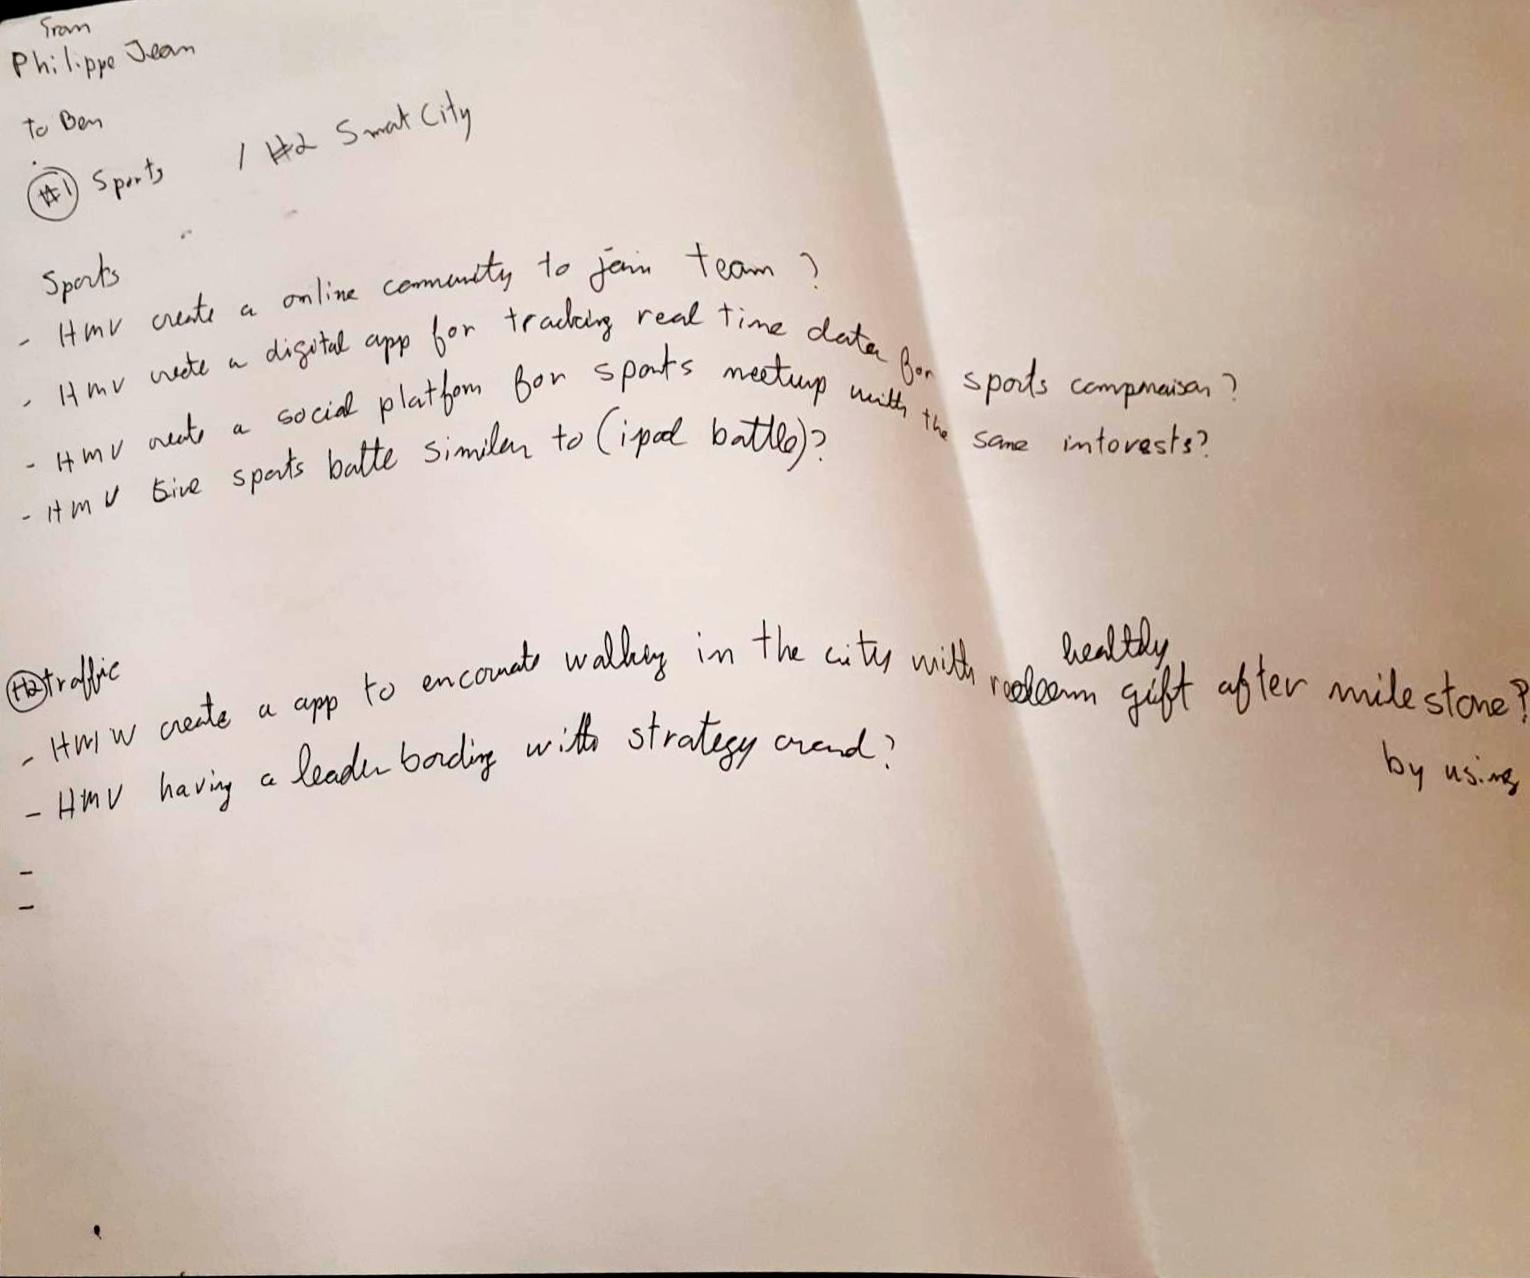 From
Philippe Jean
To Ben
#1 Sports / #2 Smat City
Sports
- HMV create a online community to join team ?
- HMV create a digital app for tracking real time data for sports compmaison ?
- HMV create a social platfom for sports meetup with the same interests?
- HMV Give sports batte similar to (ipod battle)?
#2 traffic
- HMW create a app to walking in the city with redeem healthy gift after milestone?
by using
- HMV having a leader bording with strategy ?
-
-